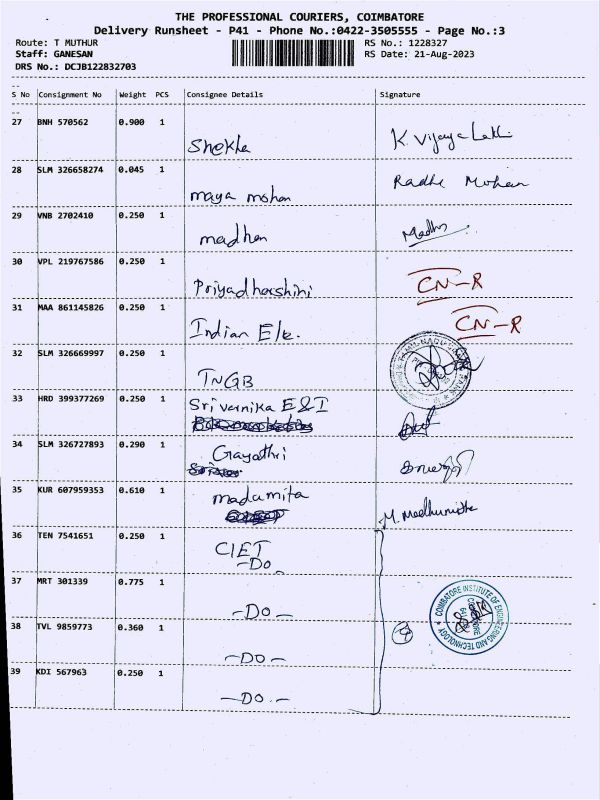 THE PROFESSIONAL COURIERS, COIMBATORE
Delivery Runsheet - P41 - Phone No.:0422-3505555 - Page No.:3
Route: T MUTHUR RS No.: 1228327
Staff: GANESAN RS Date: 21-Aug-2023
DRS No.: DCJB122832703
S No Consignment No Weight PCS Consignee Details Signature
27 BNH 570562 0.900 1
Shekha K. Vijaya Lakhi
28 SLM 326658274 0.045 1
maya mohan Radhe Mohan
29 VNB 2702410 0.250 1
madhan Madhu
30 VPL 219767586 0.250 1
Priyadharshini CN-R
31 MAA 861145826 0.250 1
Indian Ele. CN-R
32 SLM 326669997 0.250 1
TNGB
TAMIL NADU
33 HRD 399377269 0.250 1
Srivarnika E&I
34 SLM 326727893 0.290 1
Gayathri
35 KUR 607959353 0.610 1
madumita M. Madhumitha
36 TEN 7541651 0.250 1
CIET
-Do-
37 MRT 301339 0.775 1
-Do-
COIMBATORE INSTITUTE OF ENGINEERING AND TECHNOLOGY
COIMBATORE
38 TVL 9859773 0.360 1
-Do-
39 KDI 567963 0.250 1
-Do-